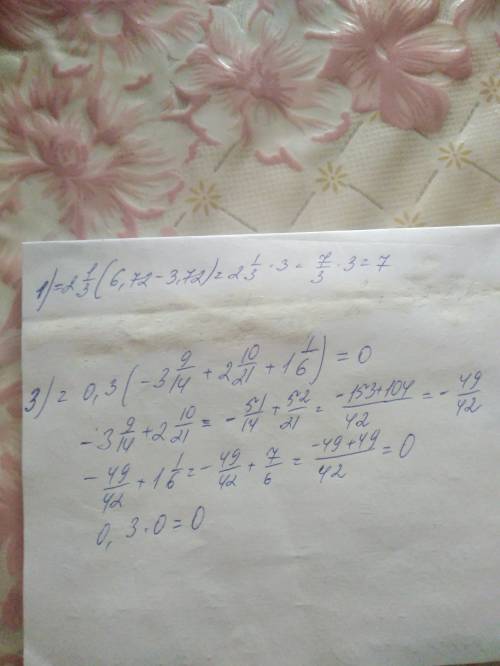 1) = 2 1/3 (6,72 - 3,72) = 2 1/3 · 3 = 7/3 · 3 = 7
3) = 0,3 (-3 9/14 + 2 10/21 + 1 1/6) = 0
-3 9/14 + 2 10/21 = -51/14 + 52/21 = (-153+104)/42 = -49/42
-49/42 + 1 1/6 = -49/42 + 7/6 = (-49+49)/42 = 0
0,3·0=0